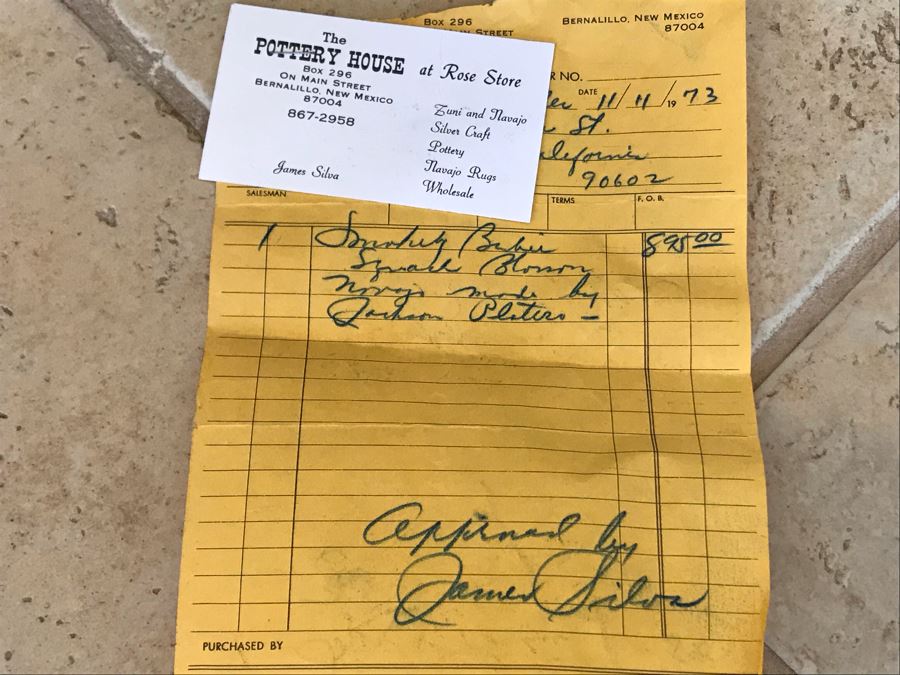 The
POTTERY HOUSE at Rose Store
Box 296
ON MAIN STREET
BERNALILLO, NEW MEXICO
87004
867-2958
Zuni and Navajo
Silver Craft
Pottery
Navajo Rugs
Wholesale
James Silva
Box 296
STREET
BERNALILLO, NEW MEXICO
87004
R NO.
DATE 11/11/1973
St.
alifornia
90602
SALESMAN
TERMS
F. O. B.
1 895.00
Squash Blosson
Navajo made by
Jackson Platero -
Approved by
James Silva
PURCHASED BY